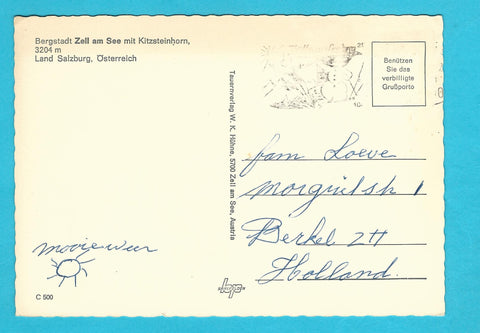 Bergstadt Zell am See mit Kitzsteinhorn,
3204 m
Land Salzburg, Österreich
Benützen
Sie das
verbilligte
Grußporto
Tauernverlag W. K. Höhne, 5700 Zell am See, Austria
fam Loeve
1
Berkel ZH
Holland.
mooie weer
C 500
bp